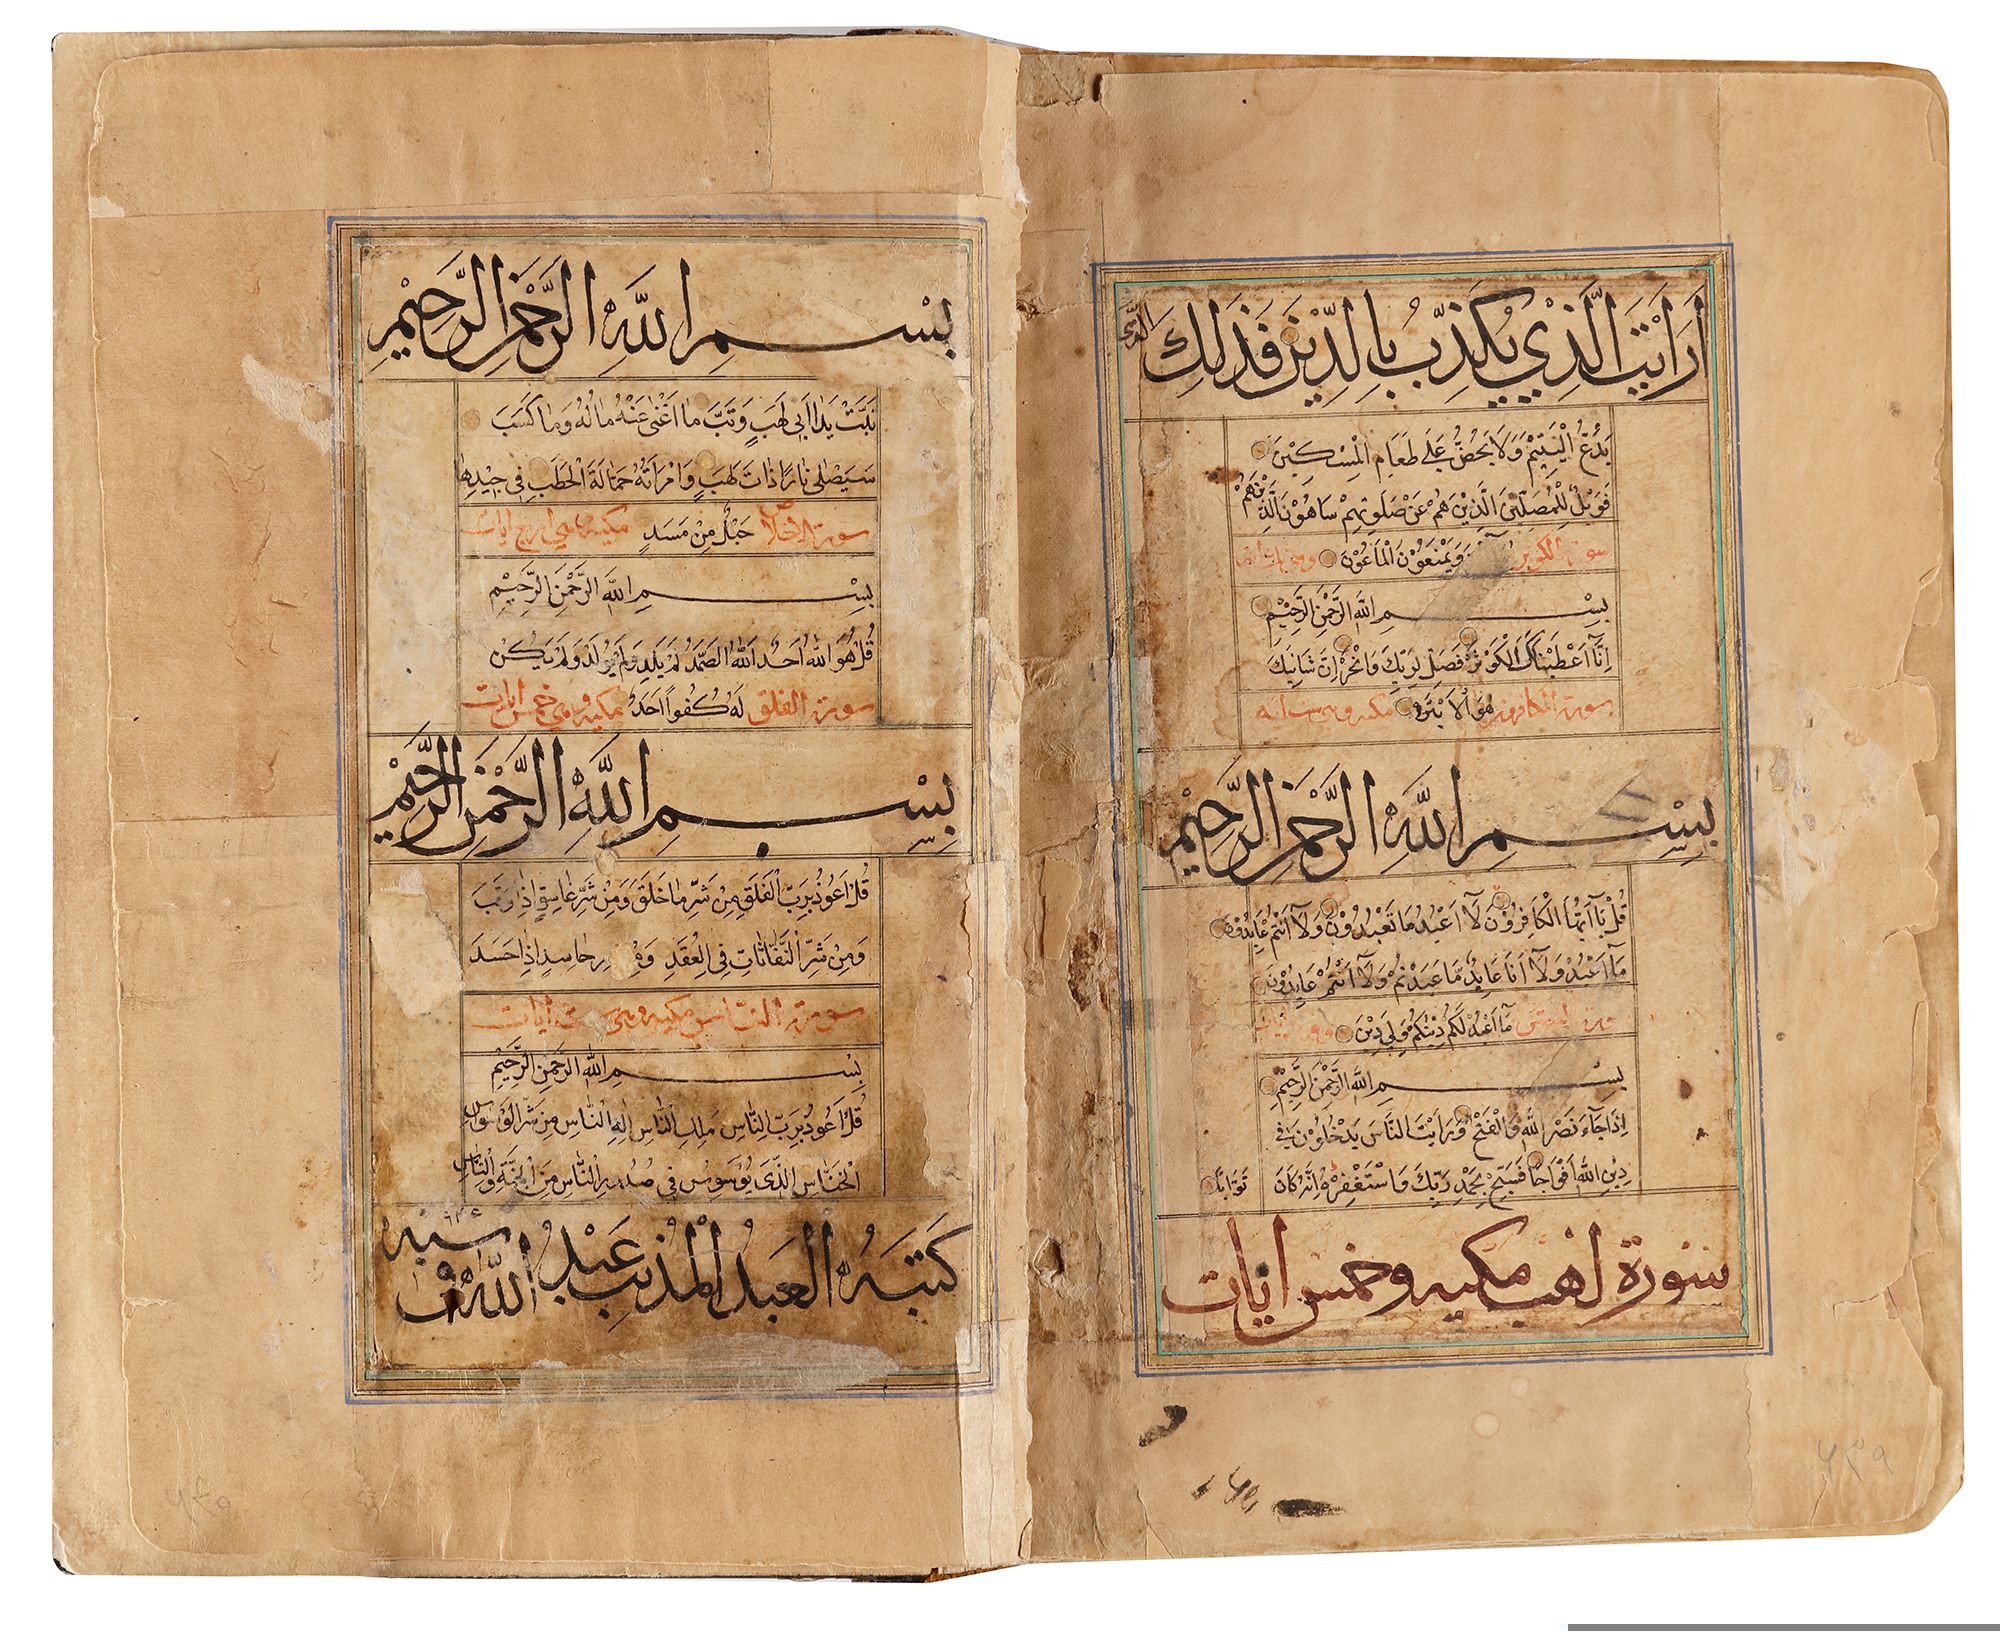 أَرَأَيْتَ الَّذِي يُكَذِّبُ بِالدِّينِ فَذَلِكَ الَّذِي
يَدُعُّ الْيَتِيْمَ وَلَا يَحُضُّ عَلَى طَعَامِ الْمِسْكِيْنِ
فَوَيْلٌ لِلْمُصَلِّيْنَ الَّذِيْنَ هُمْ عَنْ صَلَوتِهِمْ سَاهُوْنَ الَّذِيْنَ هُمْ
سورة الكوثر وَيَمْنَعُوْنَ الْمَاعُوْنَ
بِسْمِ اللَّهِ الرَّحْمَنِ الرَّحِيْمِ
اِنَّا اَعْطَيْنَاكَ الْكَوْثَرَ فَصَلِّ لِرَبِّكَ وَانْحَرْ اِنَّ شَانِئَكَ
سورة الكافرون هُوَ الْاَبْتَرُ مكيه وهى ست ايه
بِسْمِ اللَّهِ الرَّحْمَنِ الرَّحِيْمِ
قُلْ يَا اَيُّهَا الْكَافِرُوْنَ لَا اَعْبُدُ مَا تَعْبُدُوْنَ وَلَا اَنْتُمْ عَابِدُوْنَ
مَا اَعْبُدُ وَلَا اَنَا عَابِدٌ مَا عَبَدْتُمْ وَلَا اَنْتُمْ عَابِدُوْنَ
مَا اَعْبُدُ لَكُمْ دِيْنُكُمْ وَلِيَ دِيْنِ
بِسْمِ اللَّهِ الرَّحْمَنِ الرَّحِيْمِ
اِذَا جَآءَ نَصْرُ اللَّهِ وَالْفَتْحُ وَرَاَيْتَ النَّاسَ يَدْخُلُوْنَ فِي
دِيْنِ اللَّهِ اَفْوَاجًا فَسَبِّحْ بِحَمْدِ رَبِّكَ وَاسْتَغْفِرْهُ اِنَّهُ كَانَ تَوَّابًا
سورة لهب مكيه وخمس ايات
٤٣٩
بِسْمِ اللَّهِ الرَّحْمَنِ الرَّحِيْمِ
تَبَّتْ يَدَا اَبِي لَهَبٍ وَتَبَّ مَا اَغْنَى عَنْهُ مَالُهُ وَمَا كَسَبَ
سَيَصْلَى نَارًا ذَاتَ لَهَبٍ وَامْرَاَتُهُ حَمَّالَةَ الْحَطَبِ فِي جِيْدِهَا
سورة الاخلاص حَبْلٌ مِنْ مَسَدٍ مكيه وهي اربع ايات
بِسْمِ اللَّهِ الرَّحْمَنِ الرَّحِيْمِ
قُلْ هُوَ اللَّهُ اَحَدٌ اَللَّهُ الصَّمَدُ لَمْ يَلِدْ وَلَمْ يُوْلَدْ وَلَمْ يَكُنْ
سورة الفلق لَهُ كُفُوًا اَحَدٌ مكيه وهي خمس ايات
بِسْمِ اللَّهِ الرَّحْمَنِ الرَّحِيْمِ
قُلْ اَعُوْذُ بِرَبِّ الْفَلَقِ مِنْ شَرِّ مَا خَلَقَ وَمِنْ شَرِّ غَاسِقٍ اِذَا وَقَبَ
وَمِنْ شَرِّ النَّفَّاثَاتِ فِي الْعُقَدِ حَاسِدٍ اِذَا حَسَدَ
سورة الناس مكيه وهي ايات
بِسْمِ اللَّهِ الرَّحْمَنِ الرَّحِيْمِ
قُلْ اَعُوْذُ بِرَبِّ النَّاسِ مَلِكِ النَّاسِ اِلَهِ النَّاسِ مِنْ شَرِّ الْوَسْوَاسِ
الْخَنَّاسِ الَّذِي يُوَسْوِسُ فِي صُدُورِ النَّاسِ مِنَ الْجِنَّةِ وَالنَّاسِ
كَتَبَهُ الْعَبْدُ الْمُذْنِبُ عَبْدُ اللَّهِ سنه